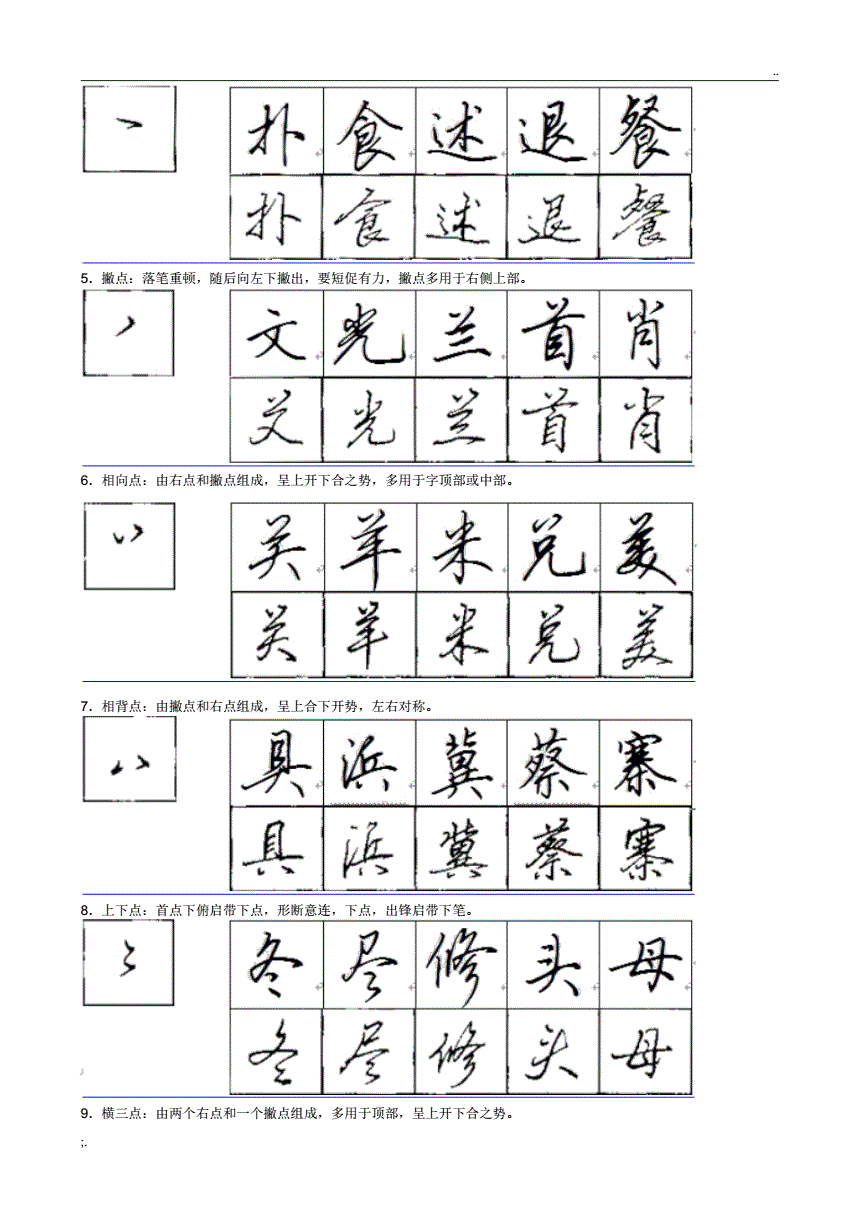 ..
扑 食 述 退 餐
扑 食 述 退 餐
5．撇点：落笔重顿，随后向左下撇出，要短促有力，撇点多用于右侧上部。
文 光 兰 首 肖
文 光 兰 首 肖
6．相向点：由右点和撇点组成，呈上开下合之势，多用于字顶部或中部。
关 羊 米 兑 美
关 羊 米 兑 美
7．相背点：由撇点和右点组成，呈上合下开势，左右对称。
具 浜 冀 蔡 寨
具 浜 冀 蔡 寨
8．上下点：首点下俯启带下点，形断意连，下点，出锋启带下笔。
冬 尽 修 头 母
冬 尽 修 头 母
9．横三点：由两个右点和一个撇点组成，多用于顶部，呈上开下合之势。
;.